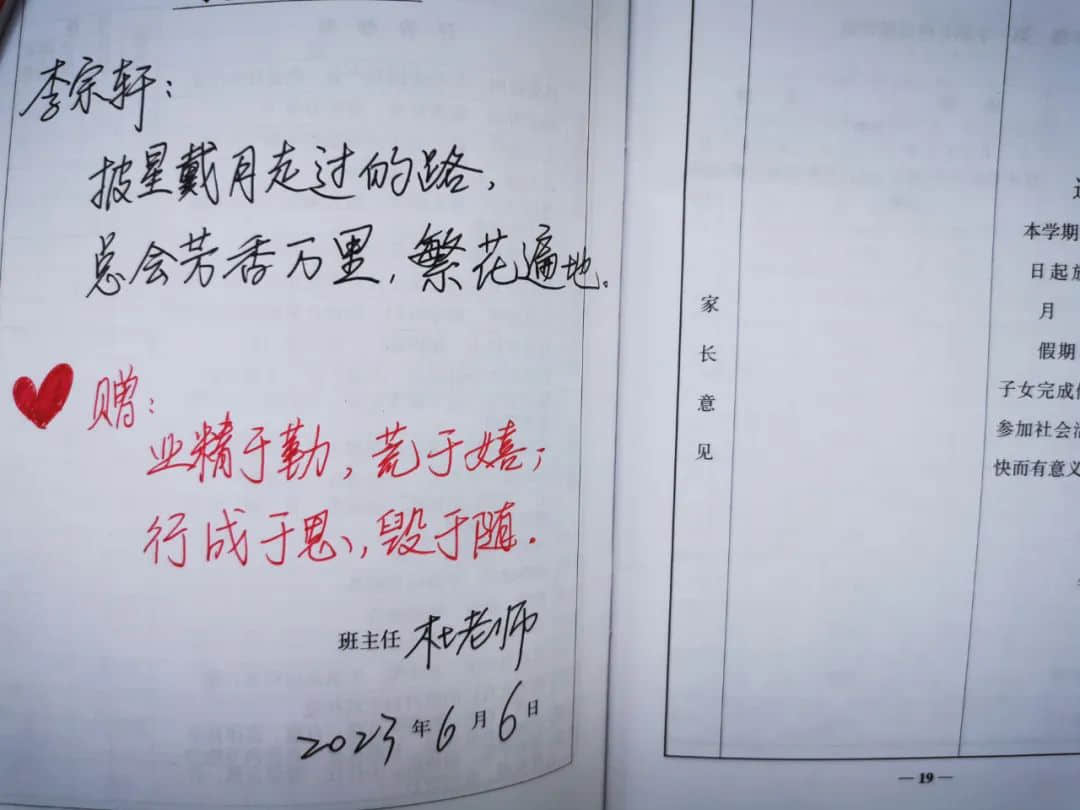 李宗轩：
披星戴月走过的路，
总会芳香万里，繁花遍地。
赠：
业精于勤，荒于嬉；
行成于思，毁于随．
班主任 杜老师
2023年6月6日
家
长
意
见
本学期
月
假期
参加社会
快而有意义
— 19 —